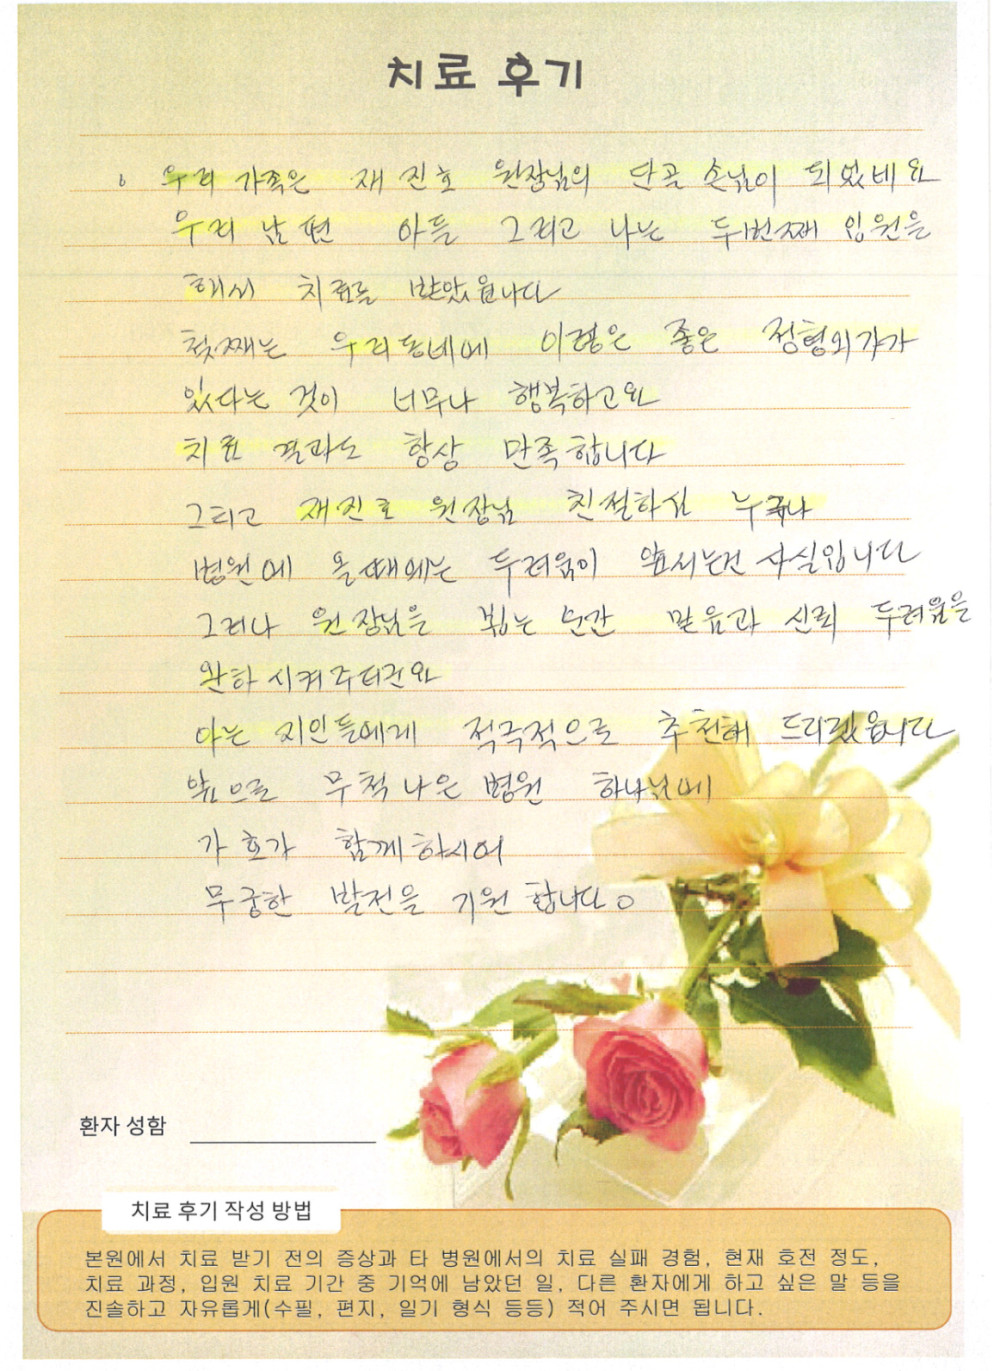 치료 후기
우리 가족은 재진호 원장님의 단골 손님이 되었네요
우리 남편 아들 그리고 나는 두번째 입원을
해서 치료를 받았읍니다
첫째는 우리동네에 이렇은 좋은 정형외과가
있다는 것이 너무나 행복하고요
치료 결과도 항상 만족합니다
그리고 재진호 원장님 친절하심 누구나
병원에 올때에는 두려움이 앞서는건 사실입니다
그러나 원장님을 뵙는 순간 믿음과 신뢰 두려움을
완하시켜주더건요
아는 지인들에게 적극적으로 추천해 드리겠읍니다
앞으로 무척나은 병원 하나님에
가호가 함께하시어
무궁한 발전을 기원 합니다。
환자 성함
치료 후기 작성 방법
본원에서 치료 받기 전의 증상과 타 병원에서의 치료 실패 경험, 현재 호전 정도,
치료 과정, 입원 치료 기간 중 기억에 남았던 일, 다른 환자에게 하고 싶은 말 등을
진솔하고 자유롭게(수필, 편지, 일기 형식 등등) 적어 주시면 됩니다.